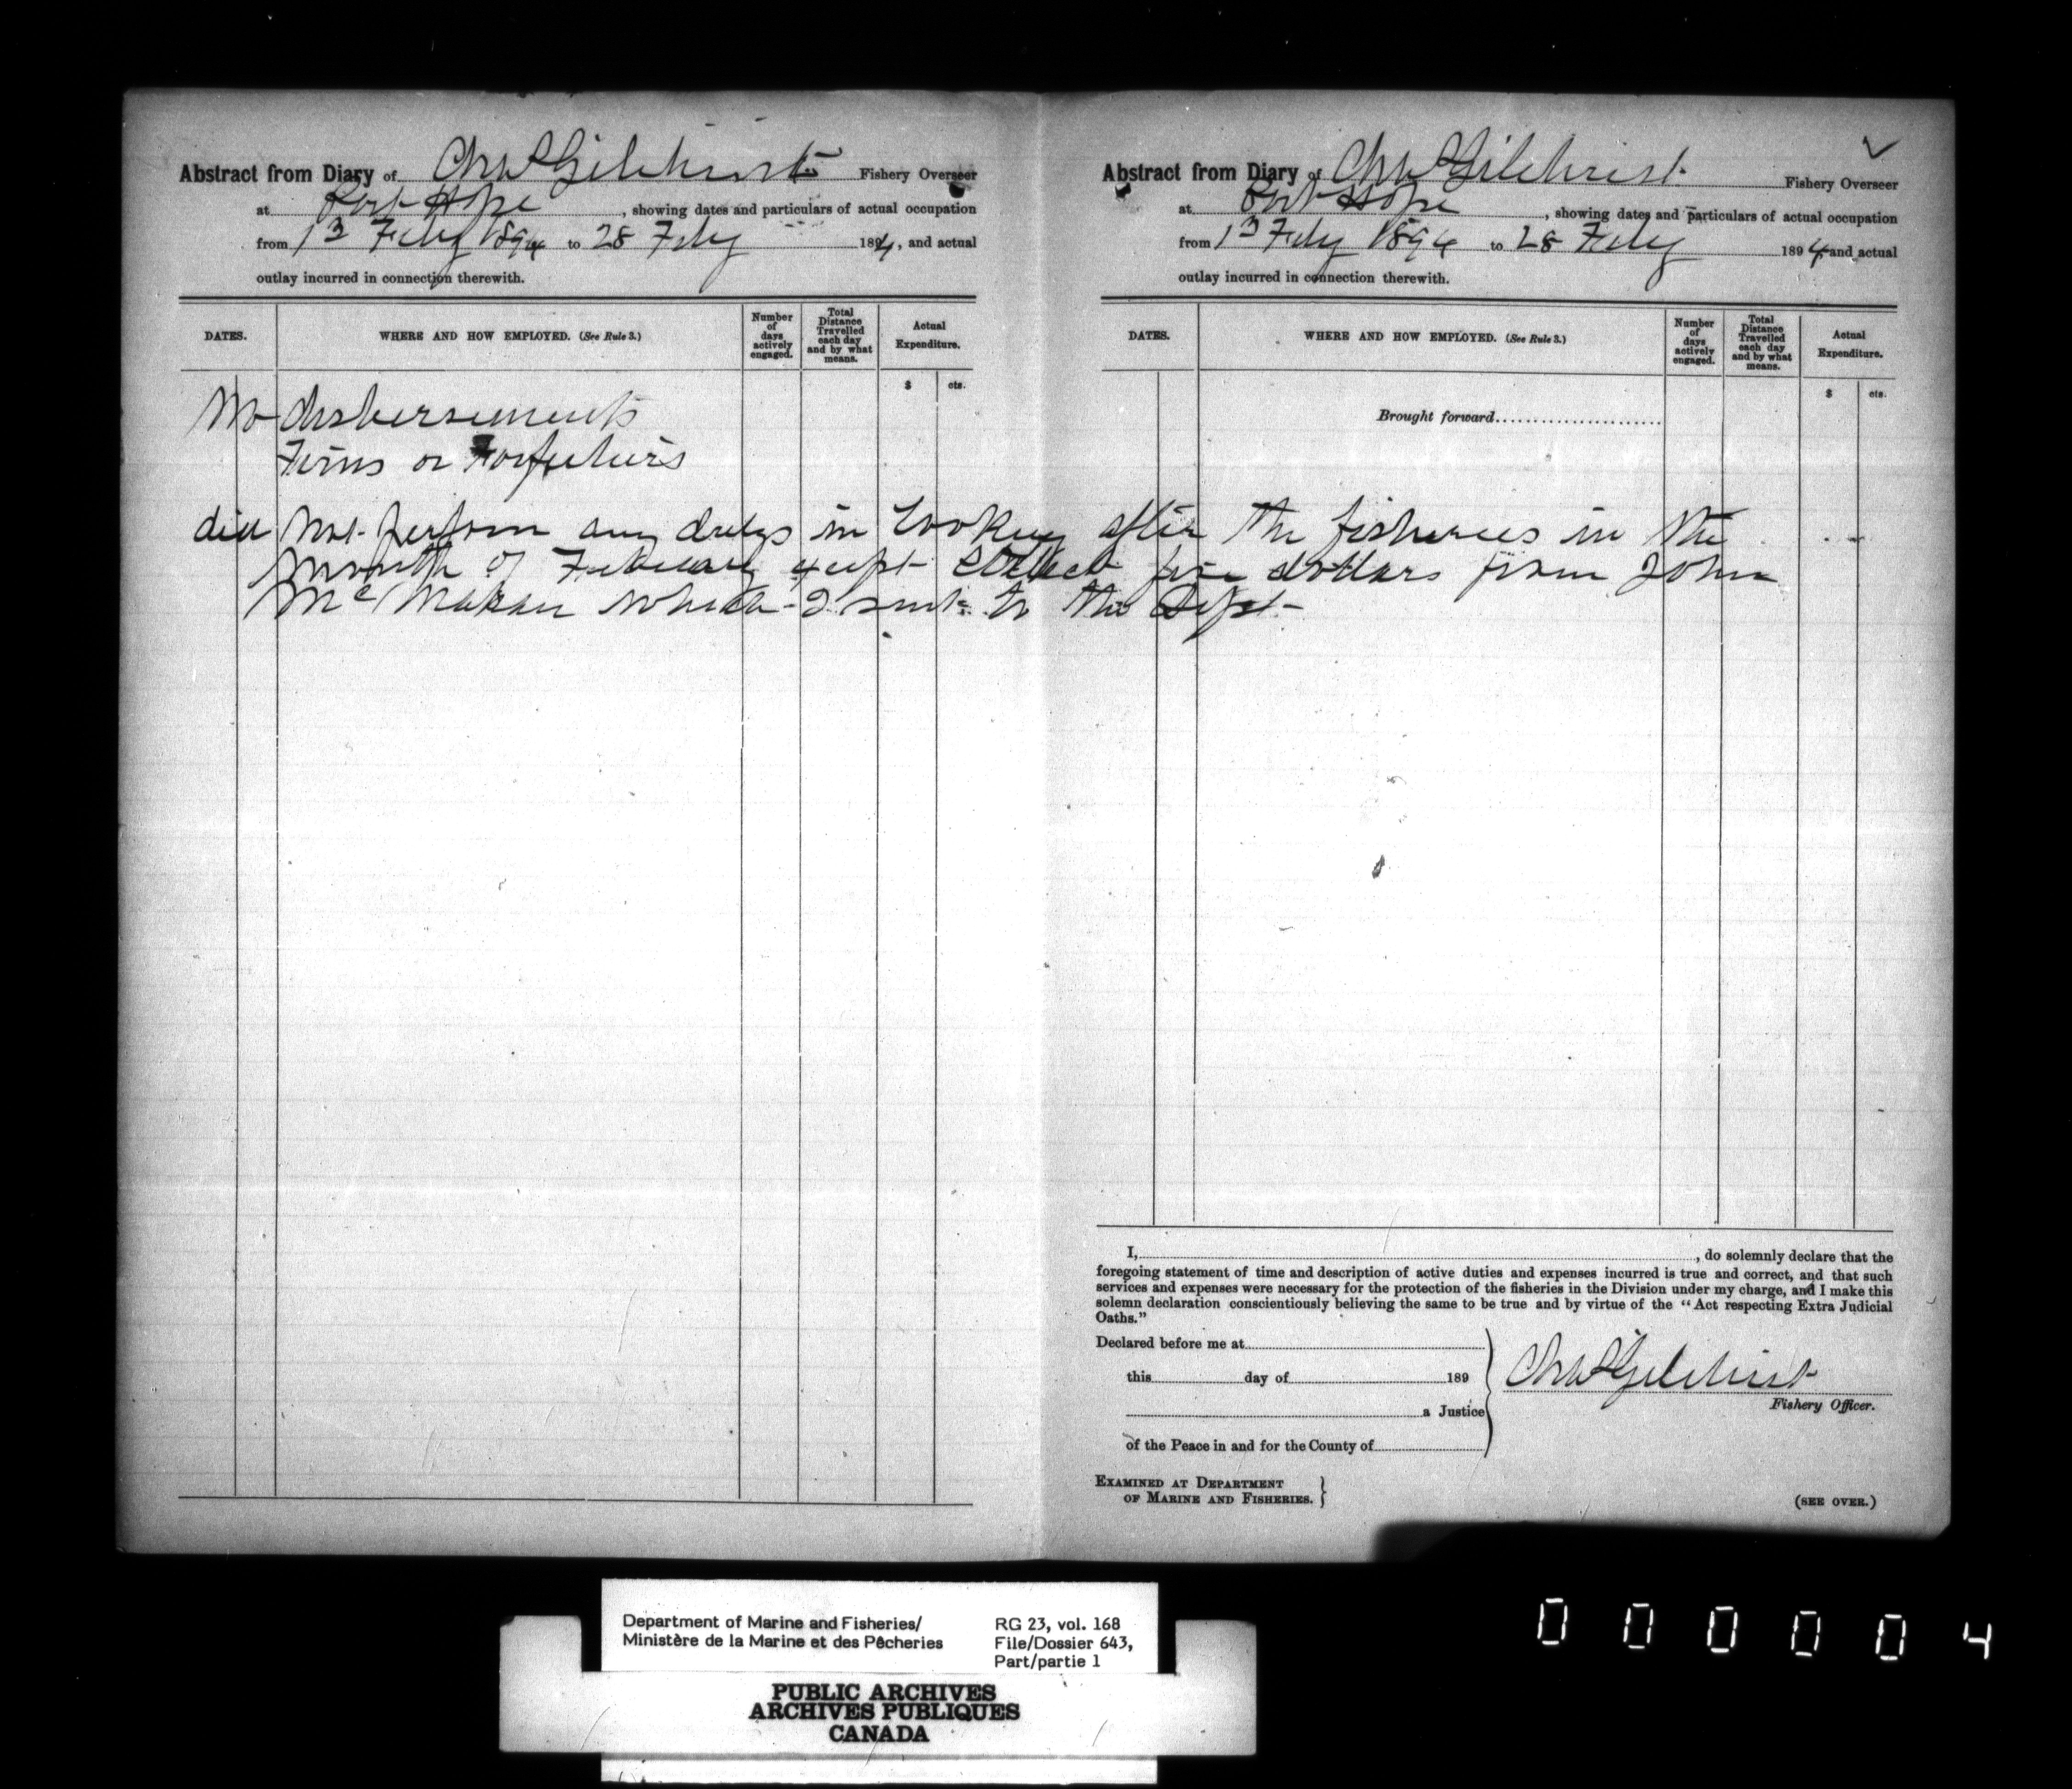 Abstract from Diary of Chas Gilchrist Fishery Overseer
at Port Hope, showing dates and particulars of actual occupation
from 1 Feby 1894 to 28 Feby 1894, and actual
outlay incurred in connection therewith.
DATES.
WHERE AND HOW EMPLOYED. (See Rule 3.)
Number of days actively engaged.
Total Distance Travelled each day and by what means.
Actual Expenditure.
$ cts.
No disbersements
Fines or Forfeitures
did not perform any dutys in looking after the fisheries in the
month of February except collect five dollars from John
Mc which I sent to the Dept
Abstract from Diary of Chas Gilchrist Fishery Overseer
at Port Hope, showing dates and particulars of actual occupation
from 1 Feby 1894 to 28 Feby 1894 and actual
outlay incurred in connection therewith.
DATES.
WHERE AND HOW EMPLOYED. (See Rule 3.)
Number of days actively engaged.
Total Distance Travelled each day and by what means.
Actual Expenditure.
$ cts.
Brought forward
I, , do solemnly declare that the
foregoing statement of time and description of active duties and expenses incurred is true and correct, and that such
services and expenses were necessary for the protection of the fisheries in the Division under my charge, and I make this
solemn declaration conscientiously believing the same to be true and by virtue of the "Act respecting Extra Judicial
Oaths."
Declared before me at
this day of 189
a Justice
of the Peace in and for the County of
Chas Gilchrist
Fishery Officer.
EXAMINED AT DEPARTMENT
OF MARINE AND FISHERIES.
(SEE OVER.)
Department of Marine and Fisheries/
Ministère de la Marine et des Pêcheries
RG 23, vol. 168
File/Dossier 643,
Part/partie 1
PUBLIC ARCHIVES
ARCHIVES PUBLIQUES
CANADA
000004